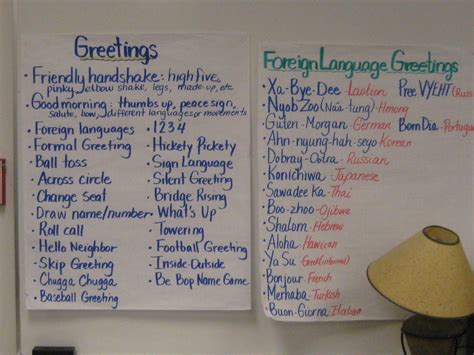 Greetings
• Friendly handshake: high five,
pinky, elbow shake, legs, made-up, etc
• Good morning: thumbs up, peace sign,
salute, bow, different languages or movements
• Foreign languages
• Formal Greeting
• Ball toss
• Across circle
• Change Seat
• Draw name/number
• Roll call
• Hello Neighbor
• Skip Greeting
• Chugga Chugga
• Baseball Greeting
• 1 2 3 4
• Hickety Pickety
• Sign Language
• Silent Greeting
• Bridge Rising
• What's Up
• Towering
• Football Greeting
• Inside-Outside
• Be Bop Name Game
Foreign Language Greetings
• Xa-Bye-Dee Laotian Pree VYEHT (Russ
• Ngob Zoo (Naa-tung) - Hmong
• Guten-Morgan - German Bom Dia - Portugu
• Ahn-nyung-hah-seyo Korean
• Dobray-Ootra - Russian
• Konichiwa - Japanese
• Sawadee Ka - Thai
• Boo-zhoo - Ojibwe
• Shalom - Hebrew
• Aloha - Hawaiian
• Ya Su - Greek (informal)
• Bonjour - French
• Merhaba - Turkish
• Buon-Giorna - Italian